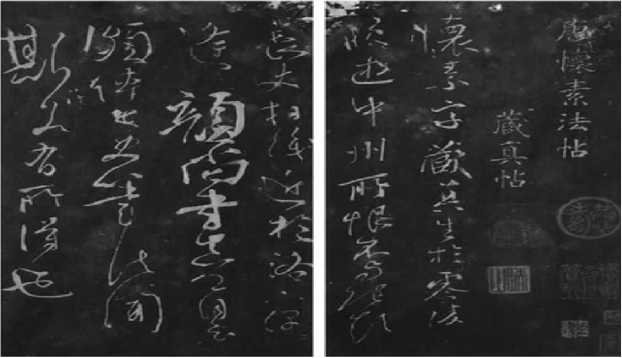 唐懷素法帖
藏真帖
懷素字藏真生於零陵
晚遊中州所恨不與張顛
長史相識近於洛下偶
逢顏尚書真卿自云
頗傳長史筆法聞
斯若有所得也